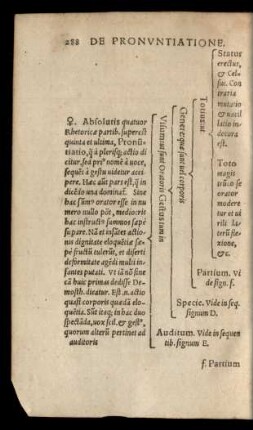 288 DE PRONVNTIATIONE.
♀. Absolutis quatuor
Rhetoricæ partib. superest
quinta et ultima, Pronū-
tiatio, q̃ à plerisq; actio di
citur, sed priꝰ nomē à uoce,
sequēs à gestu uidetur acci
pere. Hæc aūt pars est, q̃ in
dicēdo una dominat̃. Sine
hac sumꝰ orator esse in nu
mero nullo pōt, mediocris
hac instructꝰ summos sæpè
supare. Nā et infātes actio-
nis dignitate eloquētiæ sæ-
pè fructū tulerūt, et diserti
deformitate agēdi multi in-
fantes putati. Vt iā nō sine
cā huic primas dedisse De-
mosth. dicatur. Est .n. actio
quasi corporis quædā elo-
quētia. Sūt itaq; in hac duo
spectāda, uox scil. & gestꝰ,
quorum alterū pertinet ad
auditoris
Visum, ut sunt Oratoris Gestus tum in
Genere, quæ sunt uel corporis
Totius, ut
Status
erectus,
& Cel-
sus. Con
traria
mutatio
& nasil
latio in-
decora
est.
Toto
magis
trūco se
orator
modere
tur et ui
rili la-
terū fle-
xione,
&c.
Partium. vi
de sign. f.
Specie. Vide in seq.
signum D.
Auditum. Vide in sequen
tib. signum E.
f. Partium